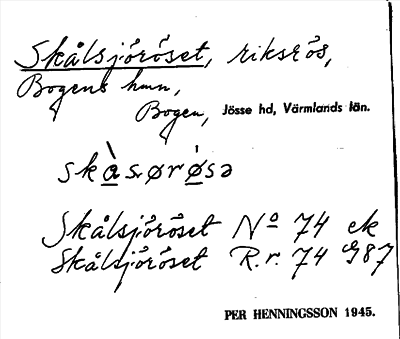 Skålsjöröset, riksrös,
Bogens hmn,
Bogen, Jösse hd, Värmlands län.
skàsørósə
Skålsjöröset No 74 ek
Skålsjöröset R.r. 74 G87
PER HENNINGSSON 1945.